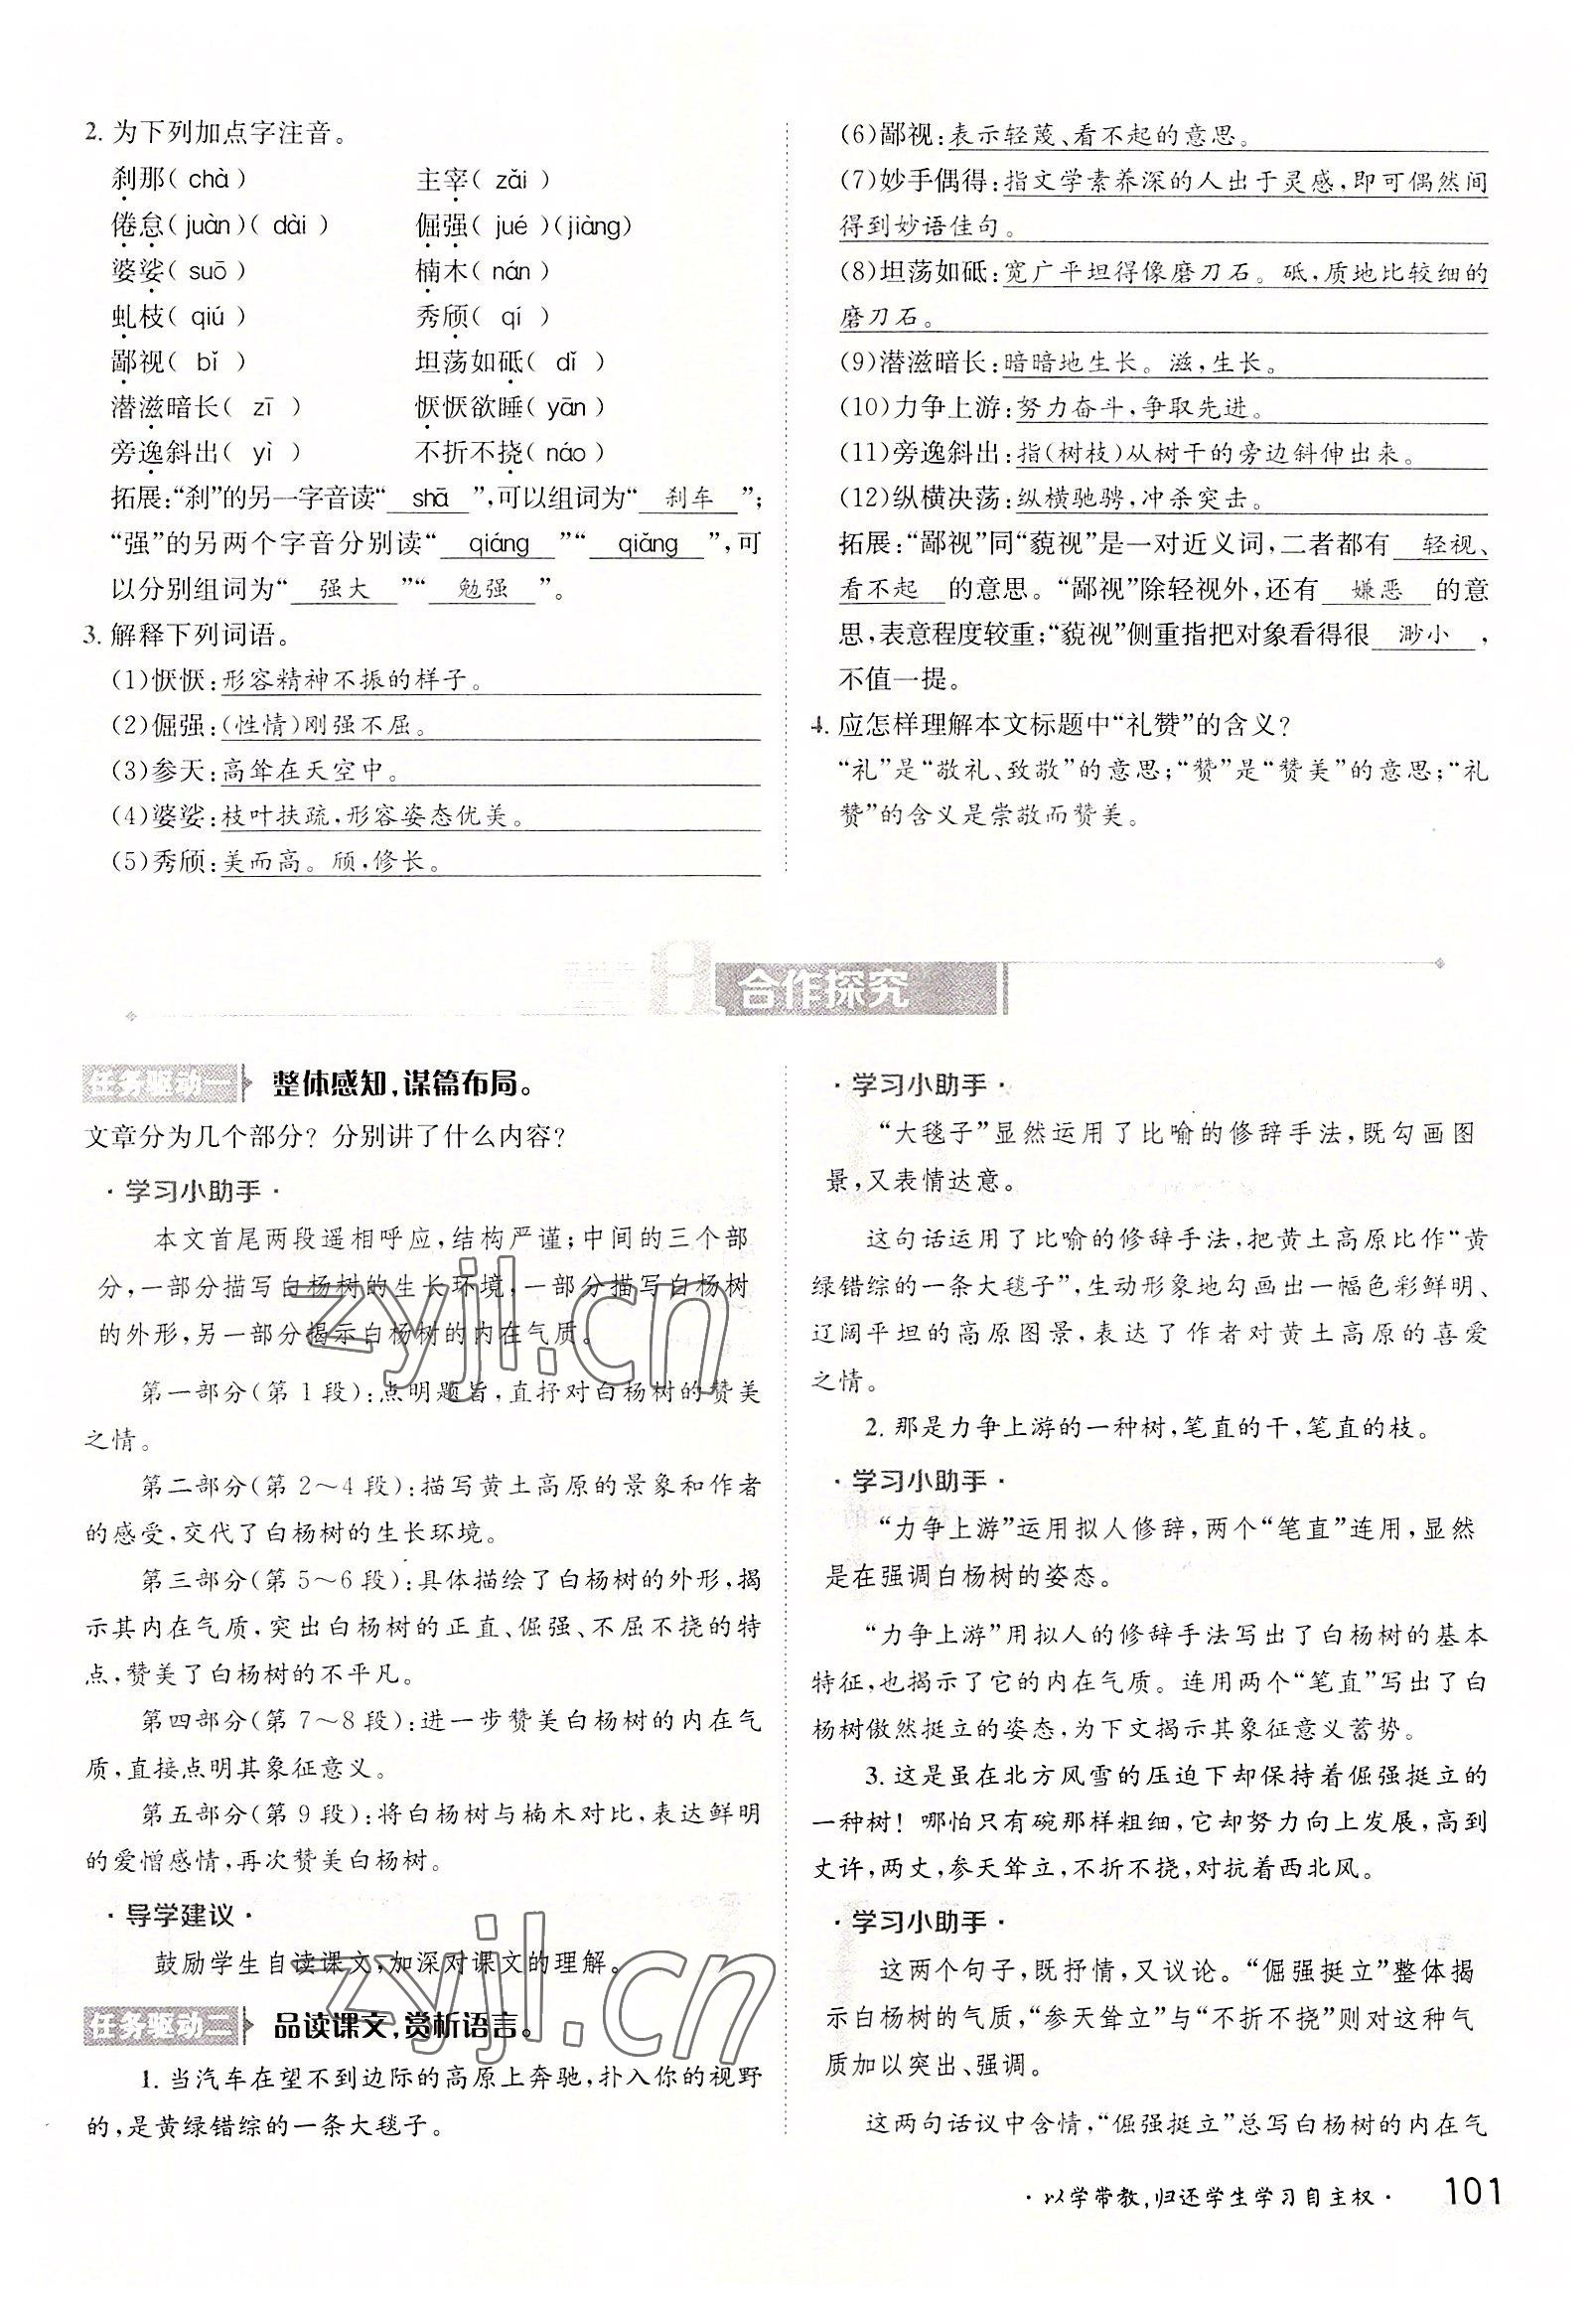 2. 为下列加点字注音。
刹那( chà )　主宰( zǎi )
倦怠( juàn )( dài )　倔强( jué )(jiàng)
婆娑( suō )　楠木( nán )
虬枝( qiú )　秀颀( qí )
鄙视( bǐ )　坦荡如砥( dǐ )
潜滋暗长( zī )　恹恹欲睡( yān )
旁逸斜出( yì )　不折不挠( náo )
拓展:“刹”的另一字音读“ shā ”,可以组词为“ 刹车 ”;
“强”的另两个字音分别读“ qiáng ”“ qiǎng ”,可
以分别组词为“ 强大 ”“ 勉强 ”。
3. 解释下列词语。
(1)恹恹:形容精神不振的样子。
(2)倔强:(性情)刚强不屈。
(3)参天:高耸在天空中。
(4)婆娑:枝叶扶疏,形容姿态优美。
(5)秀颀:美而高。颀,修长。
(6)鄙视:表示轻蔑、看不起的意思。
(7)妙手偶得:指文学素养深的人出于灵感,即可偶然间
得到妙语佳句。
(8)坦荡如砥:宽广平坦得像磨刀石。砥,质地比较细的
磨刀石。
(9)潜滋暗长:暗暗地生长。滋,生长。
(10)力争上游:努力奋斗,争取先进。
(11)旁逸斜出:指(树枝)从树干的旁边斜伸出来。
(12)纵横决荡:纵横驰骋,冲杀突击。
拓展:“鄙视”同“藐视”是一对近义词,二者都有 轻视、
看不起 的意思。“鄙视”除轻视外,还有 嫌恶 的意
思,表意程度较重;“藐视”侧重指把对象看得很 渺小 ,
不值一提。
4. 应怎样理解本文标题中“礼赞”的含义?
“礼”是“敬礼、致敬”的意思;“赞”是“赞美”的意思;“礼
赞”的含义是崇敬而赞美。
合作探究
任务驱动一　整体感知,谋篇布局。
文章分为几个部分? 分别讲了什么内容?
·学习小助手·
本文首尾两段遥相呼应,结构严谨;中间的三个部
分,一部分描写白杨树的生长环境,一部分描写白杨树
的外形,另一部分揭示白杨树的内在气质。
第一部分(第1段):点明题旨,直抒对白杨树的赞美
之情。
第二部分(第2～4段):描写黄土高原的景象和作者
的感受,交代了白杨树的生长环境。
第三部分(第5～6段):具体描绘了白杨树的外形,揭
示其内在气质,突出白杨树的正直、倔强、不屈不挠的特
点,赞美了白杨树的不平凡。
第四部分(第7～8段):进一步赞美白杨树的内在气
质,直接点明其象征意义。
第五部分(第9段):将白杨树与楠木对比,表达鲜明
的爱憎感情,再次赞美白杨树。
·导学建议·
鼓励学生自读课文,加深对课文的理解。
任务驱动二　品读课文,赏析语言。
1. 当汽车在望不到边际的高原上奔驰,扑入你的视野
的,是黄绿错综的一条大毯子。
·学习小助手·
“大毯子”显然运用了比喻的修辞手法,既勾画图
景,又表情达意。
这句话运用了比喻的修辞手法,把黄土高原比作“黄
绿错综的一条大毯子”,生动形象地勾画出一幅色彩鲜明、
辽阔平坦的高原图景,表达了作者对黄土高原的喜爱
之情。
2. 那是力争上游的一种树,笔直的干,笔直的枝。
·学习小助手·
“力争上游”运用拟人修辞,两个“笔直”连用,显然
是在强调白杨树的姿态。
“力争上游”用拟人的修辞手法写出了白杨树的基本
特征,也揭示了它的内在气质。连用两个“笔直”写出了白
杨树傲然挺立的姿态,为下文揭示其象征意义蓄势。
3. 这是虽在北方风雪的压迫下却保持着倔强挺立的
一种树! 哪怕只有碗那样粗细,它却努力向上发展,高到
丈许,两丈,参天耸立,不折不挠,对抗着西北风。
·学习小助手·
这两个句子,既抒情,又议论。“倔强挺立”整体揭
示白杨树的气质,“参天耸立”与“不折不挠”则对这种气
质加以突出、强调。
这两句话议中含情,“倔强挺立”总写白杨树的内在气
·以学带教,归还学生学习自主权·　101
zyjl.cn
zyjl.cn